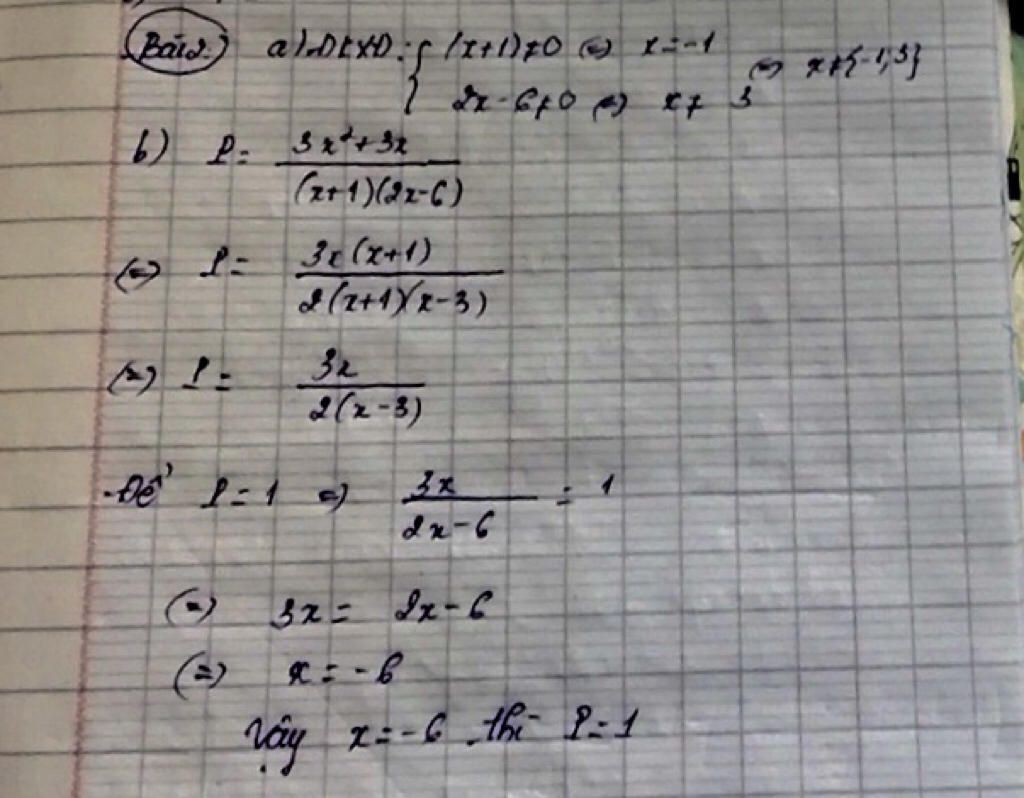 Bài 2. a) ĐKXĐ: { (x+1)≠0 <=> x=-1
2x-6≠0 <=> x≠ 3 <=> x≠{-1;3}
b) P= (3x²+3x)/((x+1)(2x-6))
(=) P= (3x(x+1))/(2(x+1)(x-3))
(=) P= 3x/(2(x-3))
-Để P=1 => 3x/(2x-6) = 1
(=) 3x= 2x-6
(=) x=-6
Vậy x=-6 thì P=1